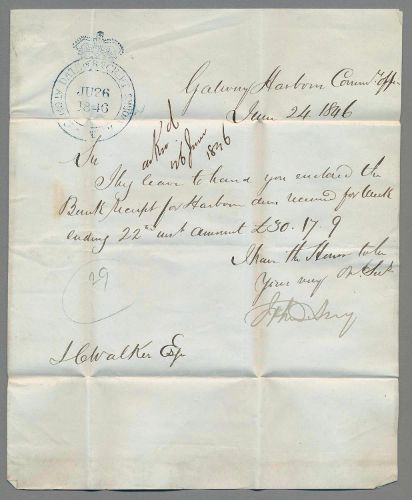 JU 26
1846
Galway Harbour Commrs Office
June 24 1846
Sir
26 June 1846
I beg leave to hand you enclosed the
Bank receipt for Harbour dues received for Week
ending 22nd inst amount £30.17.9
I have the Honor to be
Your very Obt Servt
29
J C Walker Esqr